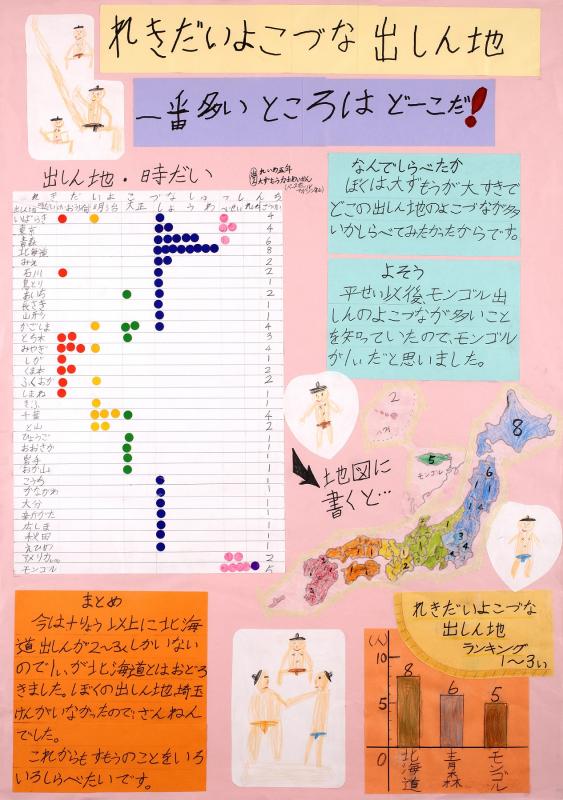 れきだいよこづな出しん地
一番多いところはどーこだ!
出しん地・時だい
れきだいよこづなしゅっしんち
大正
いばらき 4
東京 4
青森 6
北海道 8
みえ 2
石川 2
鳥とり 1
あいち 2
長さき 1
山がた 1
かごしま 4
とち木 3
みやぎ 4
しが 1
くま本 2
ふくおか 2
しまね 1
ぎふ 1
千葉 4
と山 2
ひょうご 1
おおさか 1
岩手 1
おか山 1
こうち 1
かながわ 1
大分 1
広しま 1
秋田 1
えひめ 1
アメリカ 2
モンゴル 5
なんでしらべたか
ぼくは大ずもうが大すきで
どこの出しん地のよこづなが多
いかしらべてみたかったからです。
よそう
平せい以後モンゴル出
しんのよこづなが多いこと
を知っていたので、モンゴル
が1いだと思いました。
地図に
書くと…
2
ハワイ
5
モンゴル
8
6
まとめ
今は十りょう以上に北海
道出しんが2~3人しかいない
ので1いが北海道とはおどろ
きました。ぼくの出しん地、埼玉
けんがいなかったので、さんねん
でした。
これからもすもうのことをいろ
いろしらべたいです。
れきだいよこづな
出しん地
ランキング
1~3い
(人)
10
5
0
8
6
5
北海道
青森
モンゴル